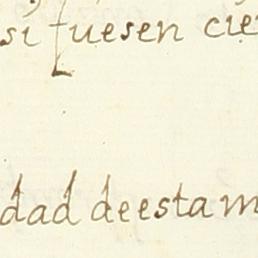 si fuesen cie
dad deesta m